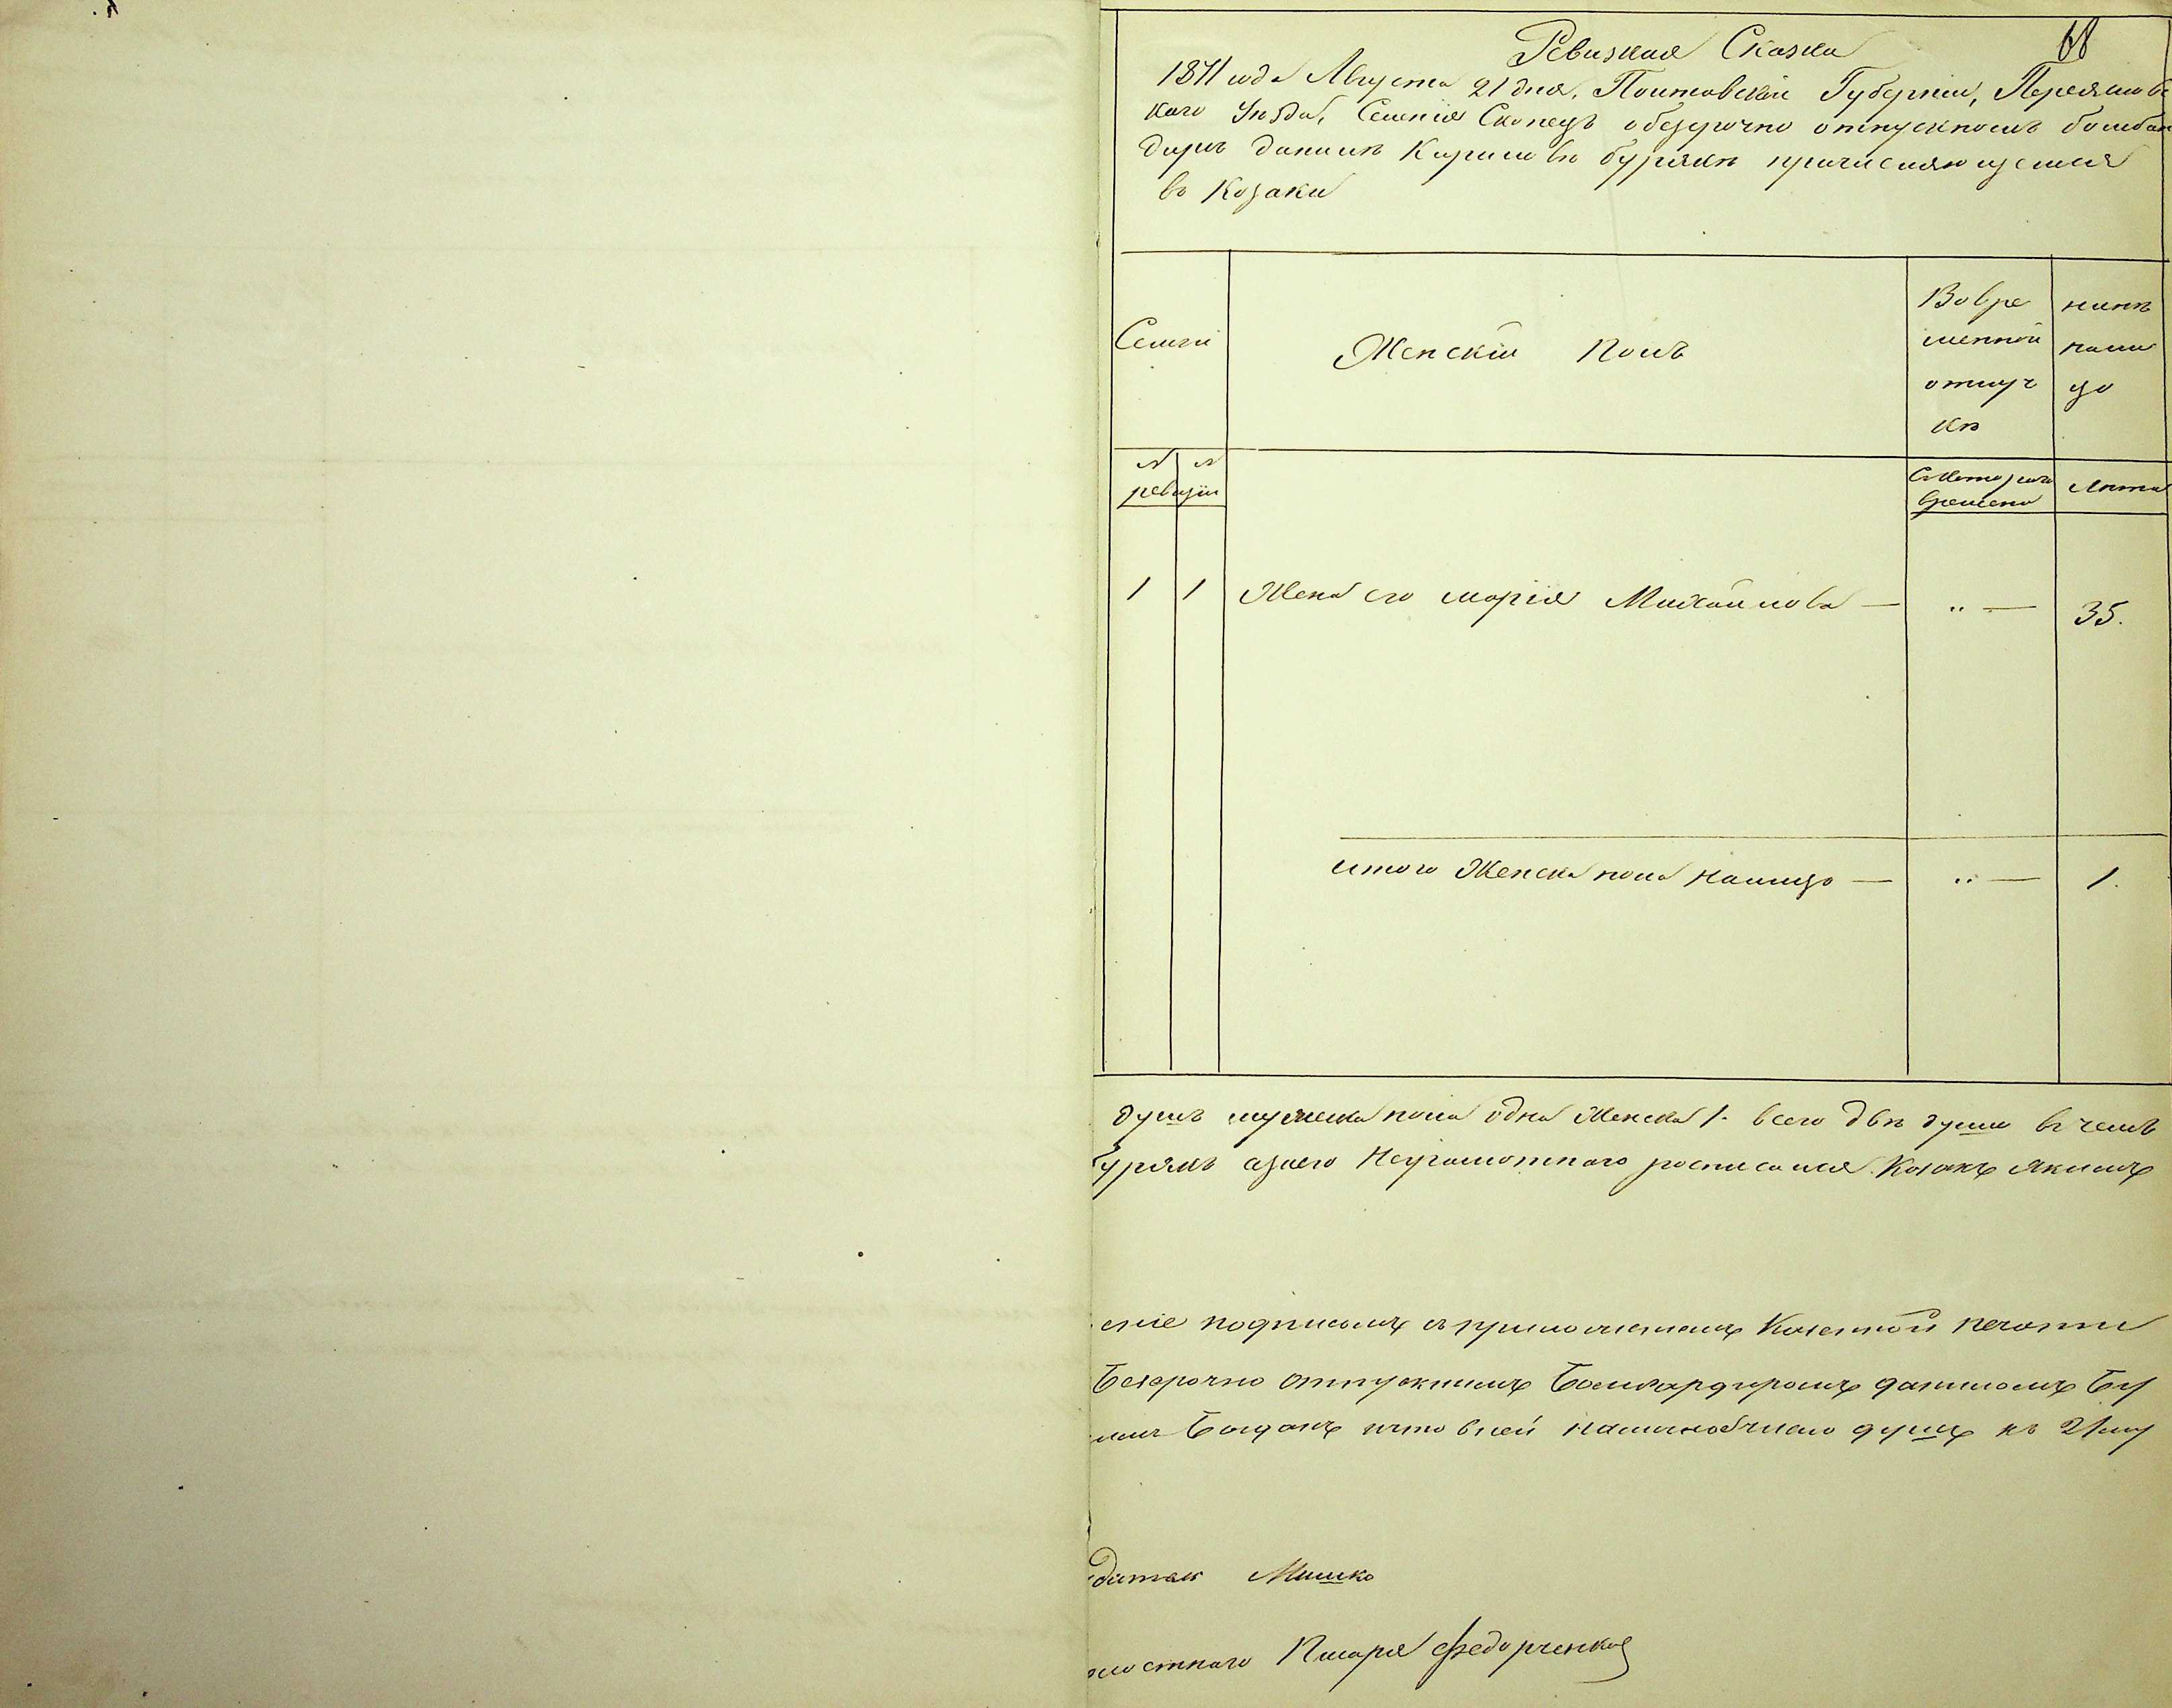 68
Ревизкая Сказка
1871 года Августа 21 дня, Полтавской Губерніи, Переяславс
каго Уѣзда, Селенія Скопецъ о безсрочно отпускномъ бомбан
диръ Данилѣ Кириловѣ Бурякѣ причисляющемся
въ Козаки
Семьи
Женскій Полъ
Во вре
менной
отлуч
кѣ
нынѣ
нали
цо
№ № ревизіи
Съ котораго времени
Лѣта
1 1 Жена его Марія Михайлова — „ — 35.
итого Женска пола налицо — „ — 1.
душъ мужеска пола одна Женска 1. всего двѣ души въ чемъ
Бурякъ а за его Неграмотнаго росписался Козакъ Якимъ
подписомъ съ приложеніемъ Казенной печати
Безсрочно отпускнымъ Бомбардиромъ Даниломъ Бу
что в ней наличное число душъ къ 21му
Мишко
Писаря Федорченко